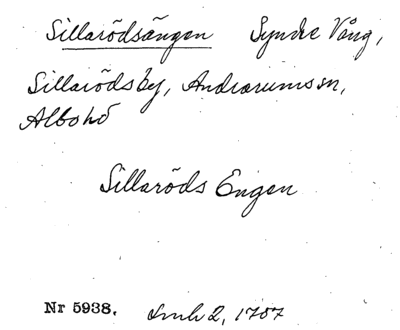 Sillarödsängen Syndre Vång,
Sillaröds by, Andrarums sn,
Albo hd
Sillaröds Engen
Nr 5938. 2, 1757